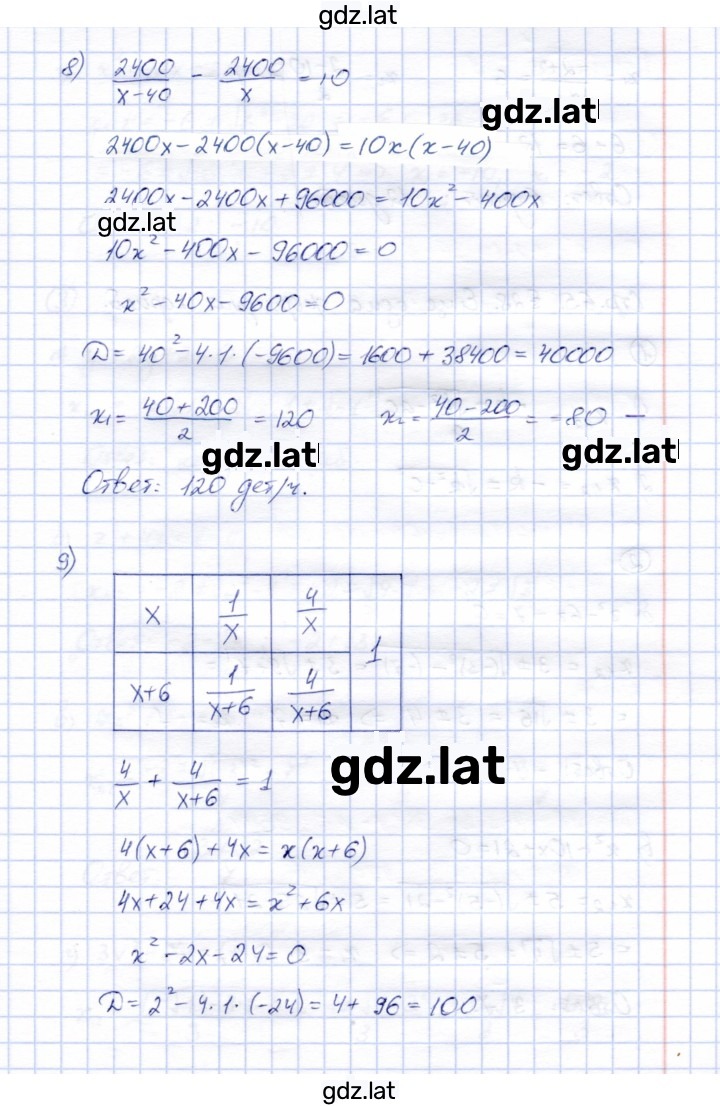 gdz.lat
8) 2400/(x-40) - 2400/x = 10
gdz.lat
2400x - 2400(x-40) = 10x(x-40)
2400x - 2400x + 96000 = 10x² - 400x
gdz.lat
10x² - 400x - 96000 = 0
x² - 40x - 9600 = 0
D = 40² - 4·1·(-9600) = 1600 + 38400 = 40000
x₁ = (40+200)/2 = 120 x₂ = (40-200)/2 = -80 —
gdz.lat gdz.lat
Ответ: 120 дет/ч.
9)
x 1/x 4/x 1
x+6 1/(x+6) 4/(x+6)
4/x + 4/(x+6) = 1
gdz.lat
4(x+6) + 4x = x(x+6)
4x + 24 + 4x = x² + 6x
x² - 2x - 24 = 0
D = 2² - 4·1·(-24) = 4 + 96 = 100
gdz.lat